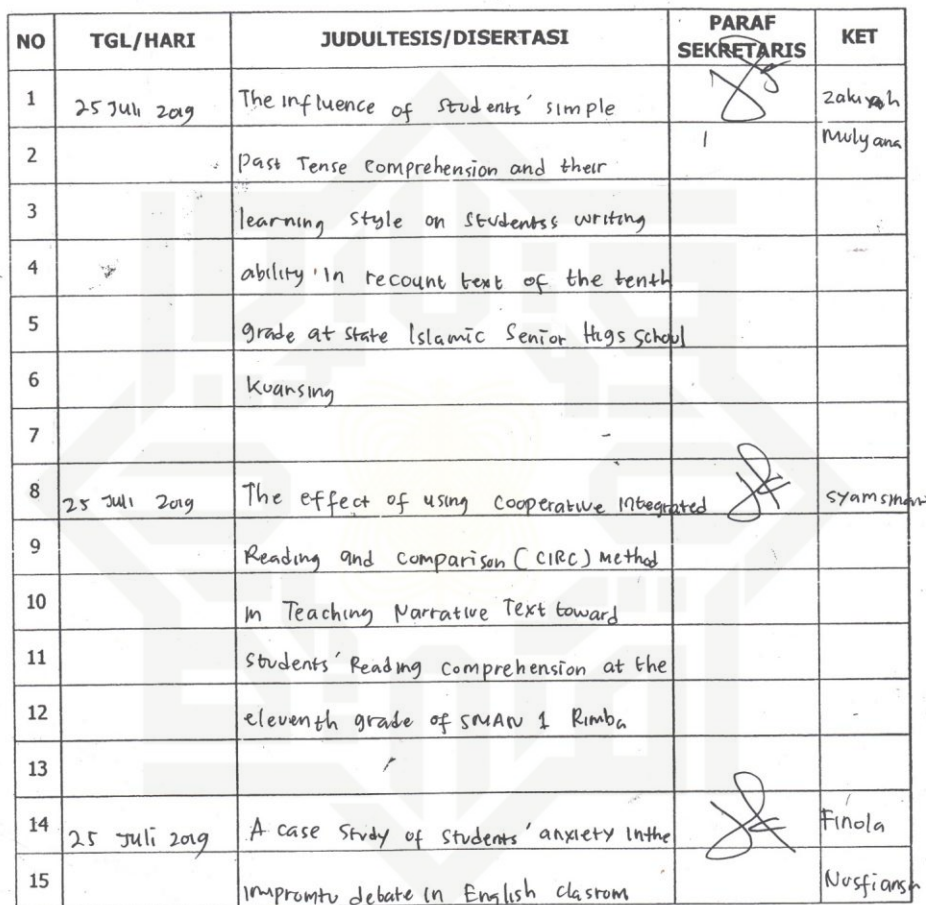 NO TGL/HARI JUDULTESIS/DISERTASI PARAF SEKRETARIS KET
1 25 Juli 2019 The influence of students' simple Zakiyah
2 Past Tense comprehension and their Mulyana
3 learning style on studentss writing
4 ability in recount text of the tenth
5 grade at state Islamic Senior Higs School
6 Kuansing
7
8 25 Juli 2019 The effect of using cooperative integrated
9 Reading and comparison (CIRC) Method
10 in Teaching Narrative Text toward
11 students' Reading comprehension at the
12 eleventh grade of SMAN 1 Rimba
13
14 25 Juli 2019 A case study of students' anxiety in the Finola
15 impromtu debate in English clasrom